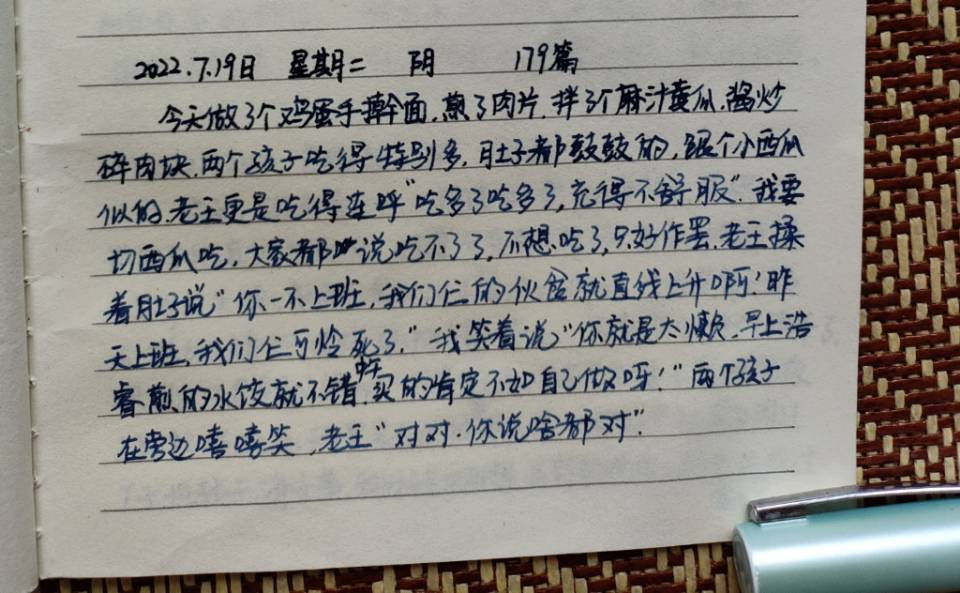 2022.7.19日 星期二 阴 179篇
今天做了个鸡蛋手擀面,煎了肉片,拌了个麻汁黄瓜,酱炒
碎肉块,两个孩子吃得特别多,肚子都鼓鼓的,跟个小西瓜
似的,老王更是吃得连呼"吃多了吃多了,充得不舒服".我要
切西瓜吃,大家都说吃不了了,不想吃了,只好作罢.老王揉
着肚子说"你一不上班,我们仨的伙食就直线上升啊!昨
天上班,我们仨可怜死了."我笑着说"你就是太懒,早上浩
睿煎的水饺就不错,中午买的肯定不如自己做呀!"两个孩子
在旁边嘻嘻笑,老王"对对.你说啥都对".